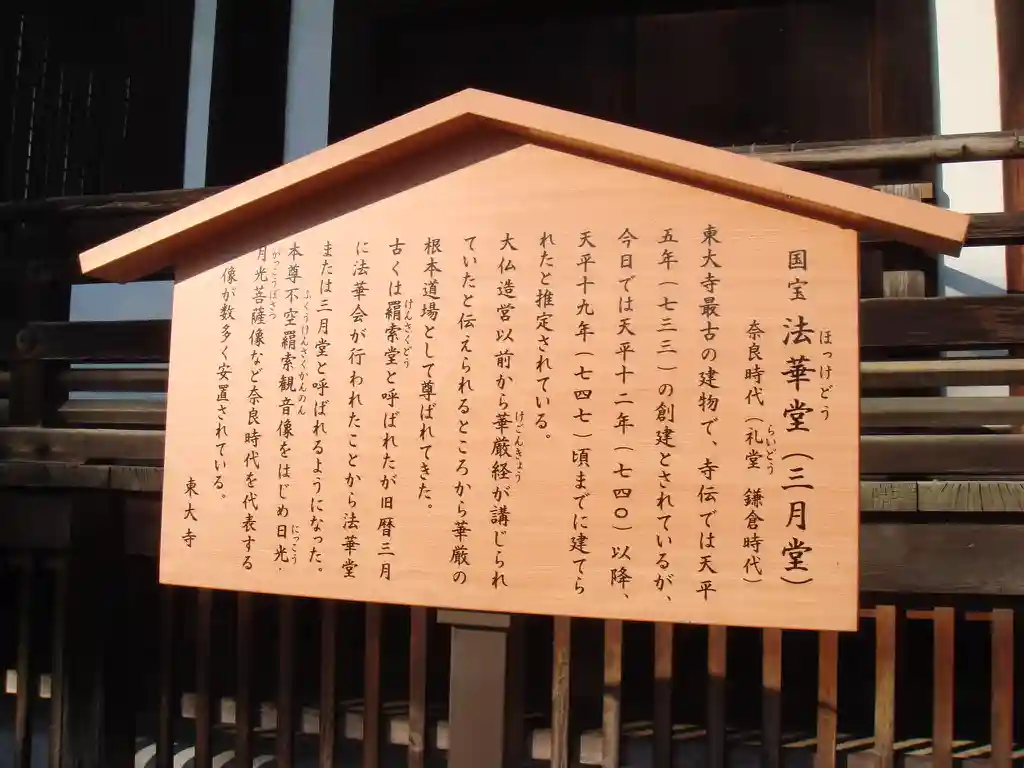 国宝 法華堂（三月堂）
ほっけどう
奈良時代（礼堂 鎌倉時代）
らいどう
東大寺最古の建物で、寺伝では天平
五年（七三三）の創建とされているが、
今日では天平十二年（七四〇）以降、
天平十九年（七四七）頃までに建てら
れたと推定されている。
大仏造営以前から華厳経が講じられ
けごんきょう
ていたと伝えられるところから華厳の
根本道場として尊ばれてきた。
古くは羂索堂と呼ばれたが旧暦三月
けんさくどう
に法華会が行われたことから法華堂
または三月堂と呼ばれるようになった。
本尊不空羂索観音像をはじめ日光・
ふくうけんさくかんのん
にっこう
月光菩薩像など奈良時代を代表する
がっこうぼさつ
像が数多く安置されている。
東大寺